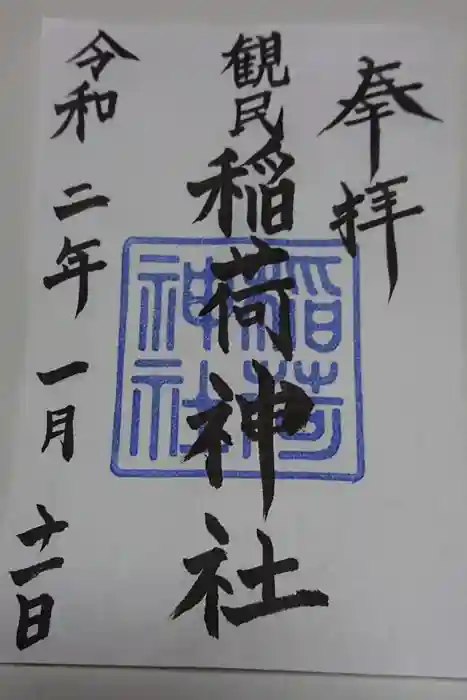 奉拝
観民稲荷神社
令和二年一月十一日
稲荷
神社